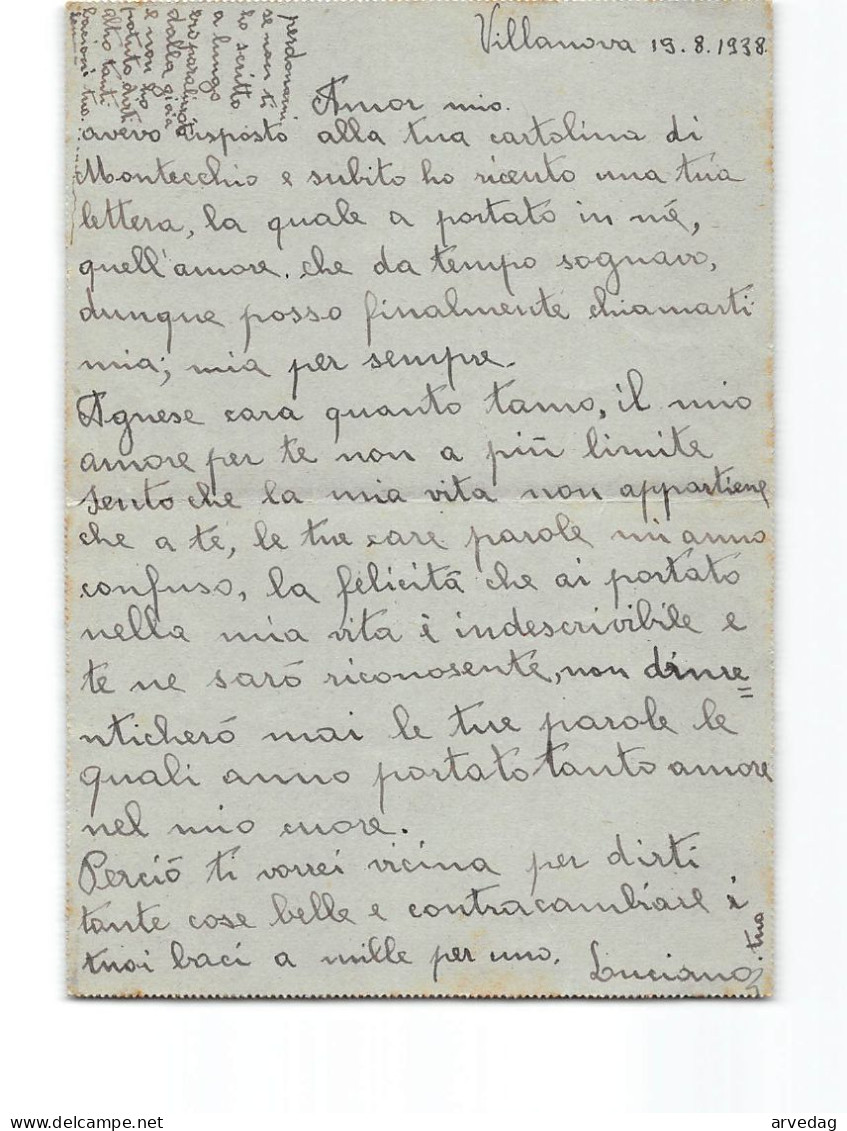 Villanova 19.8.1938.
Amor mio.
avevo risposto alla tua cartolina di
Montecchio e subito ho riceuto una tua
lettera, la quale a portato in mé,
quell'amore. che da tempo sognavo,
dunque posso finalmente chiamarti
mia; mia per sempre.
Agnese cara quanto tamo, il mio
amore per te non a piú limite
sento che la mia vita non appartiene
che a te, le tue care parole mi anno
confuso, la felicitá che ai portato
nella mia vita é indescrivibile e
te ne saró riconosente, non dime=
nticheró mai le tue parole le
quali anno portato tanto amore
nel mio cuore.
Perció ti vorrei vicina per dirti
tante cose belle e contracambiare i
tuoi baci a mille per uno.
Luciano
tuo
perdonami
se non ti
ho scritto
a lungo
ero
dalla gioia
e non ho
potuto dirti
altro tanti
bacioni tuo
delcampe.net
arvedag